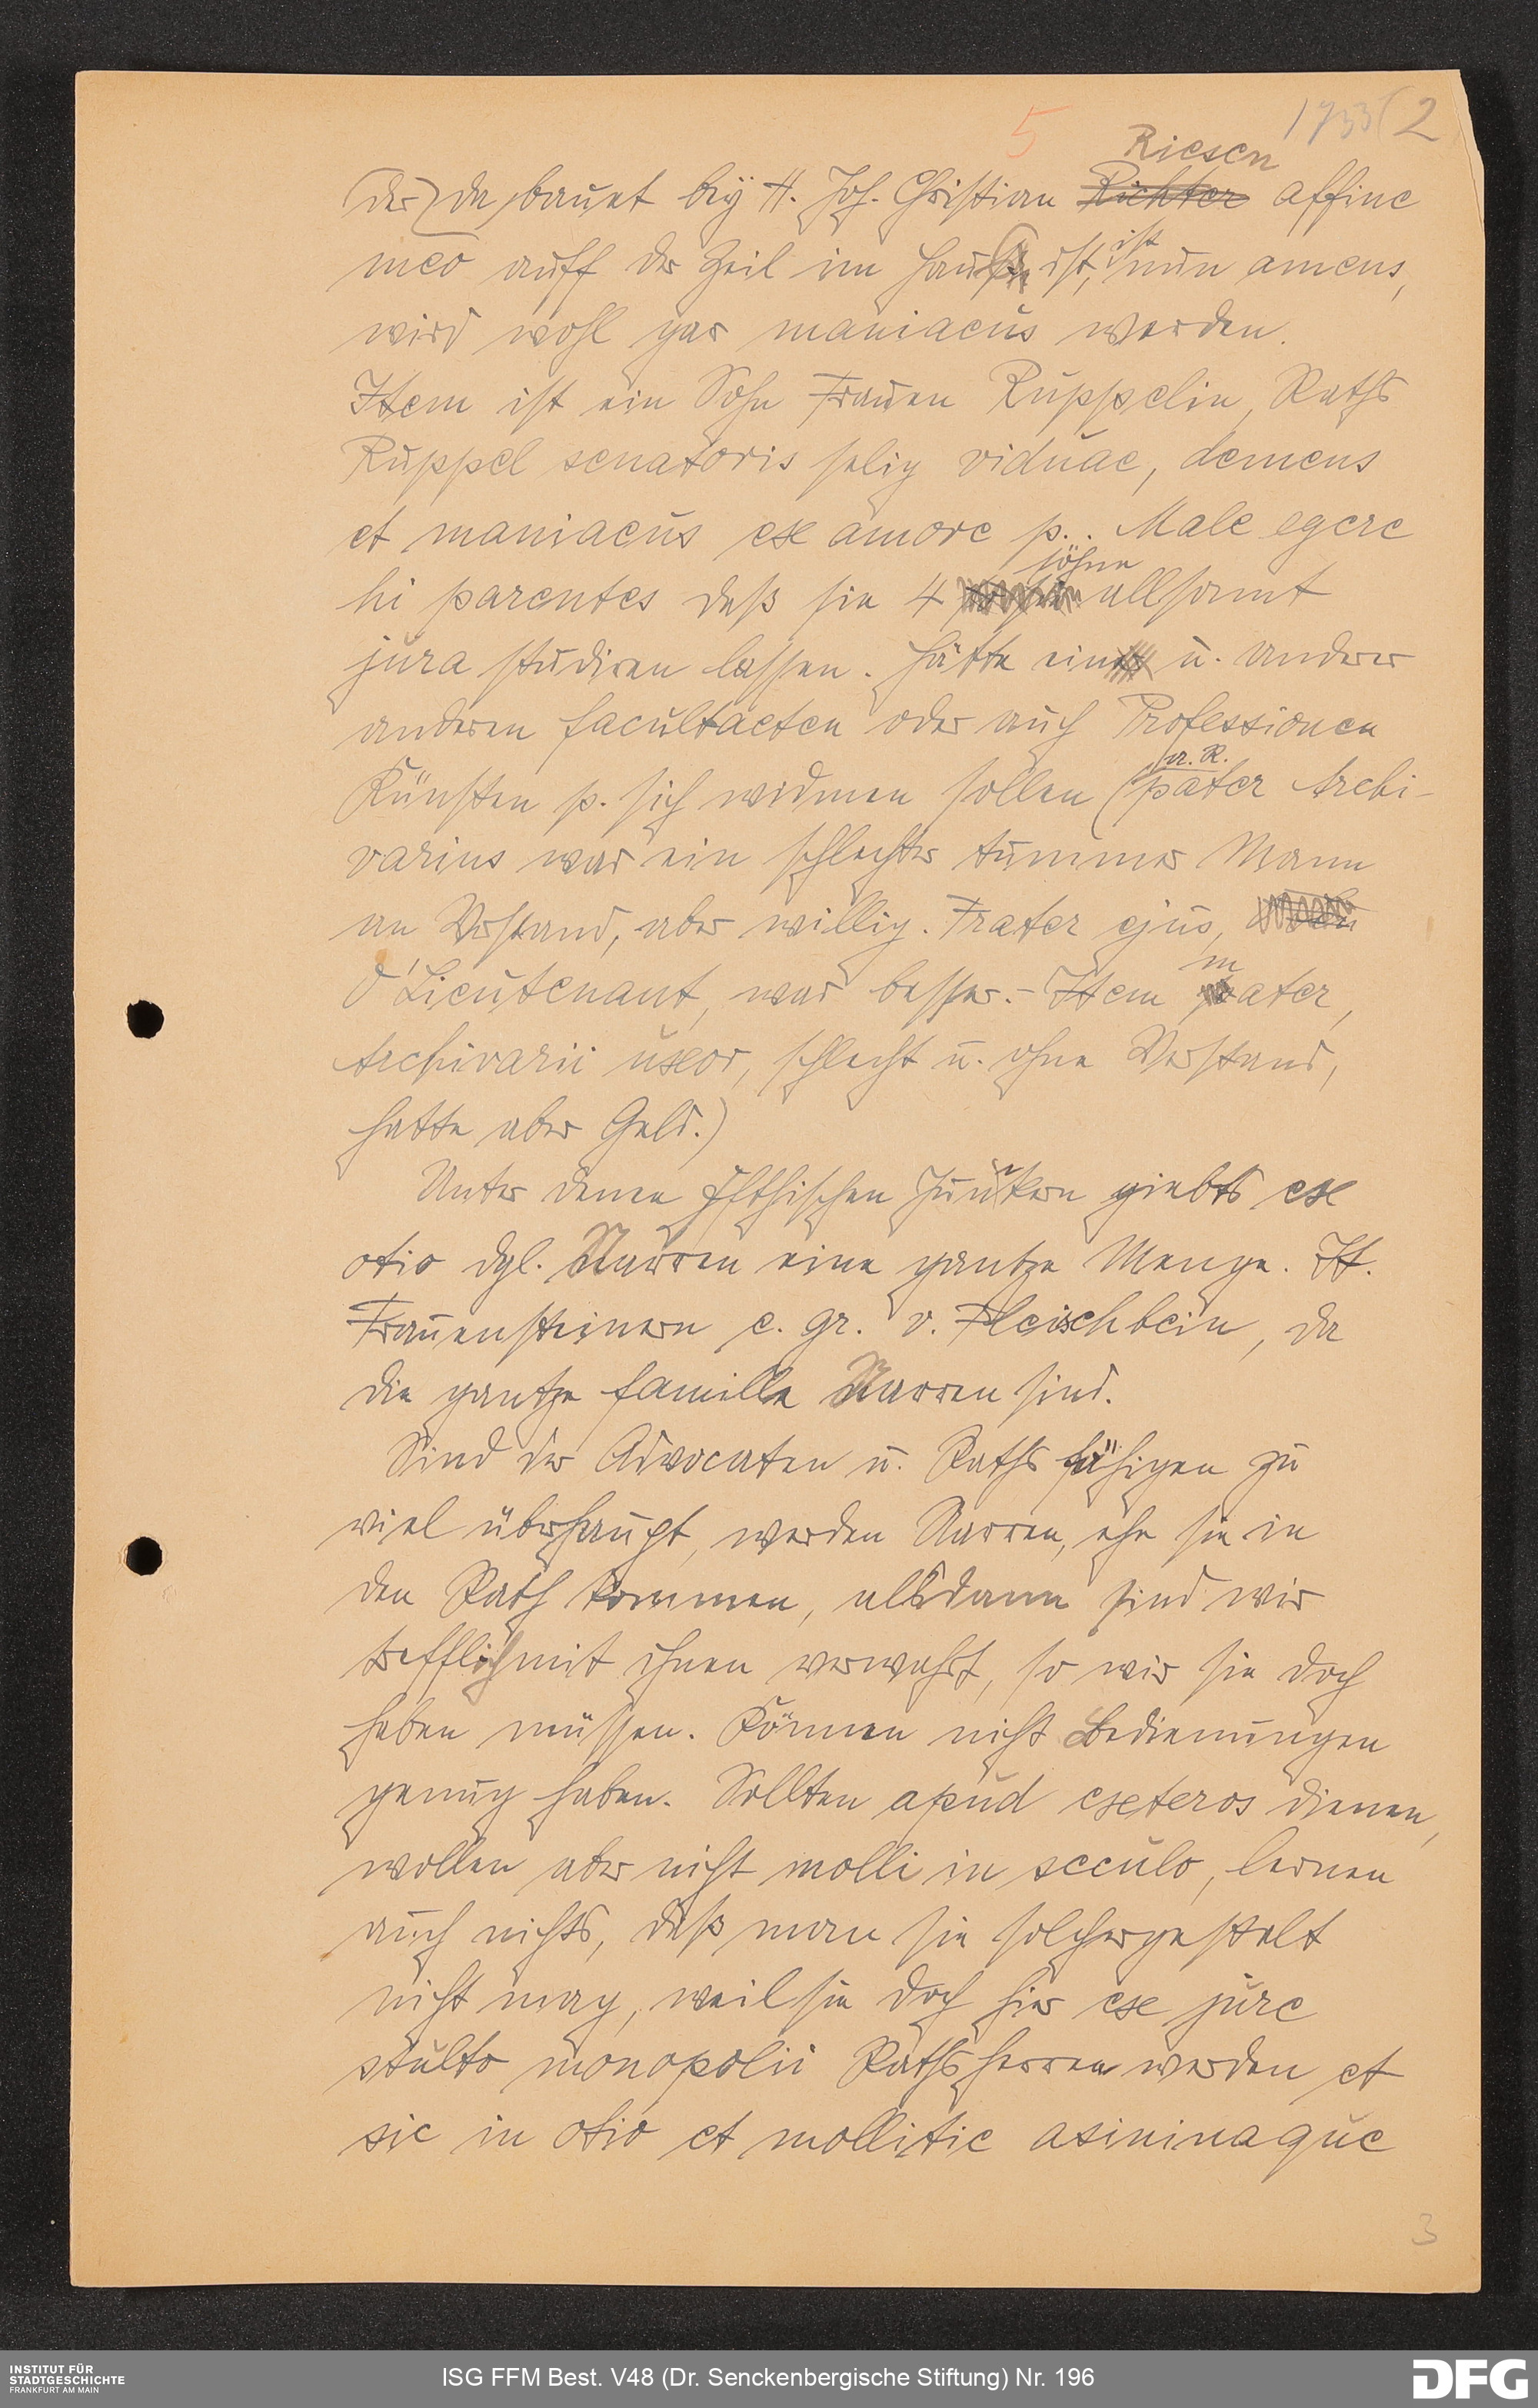 5 1733 (2
Riesen
(der) da bauet bey H. Joh. Christian Richter affine
meo auff der Zeil im Hauß ist, ist nun amens,
wird wohl gar maniacus werden.
Item ist ein Sohn Frauen Ruppelin, Raths
Ruppel senatoris selig viduae, demens
et maniacus ex amore p.. Male egere
söhne
hi parentes daß sie 4 allsamt
jura studiren lassen. Hätte ein u. anderer
anderen facultaeten oder auch Professionen
v. R.
Künsten p. sich widmen sollen (pater Archi-
varius war ein schlechter tummer Mann
an Verstand, aber willig. Frater ejus,
d' Lieutenant, war besser.- Item mater,
Archivarii uxor, schlecht u. ohne Verstand,
hatte aber Geld.)
Unter denen Ifthischen Junkern giebts ex
otio dgl. Narren eine gantze Menge. It.
Frauensteinern e. gr. v. Fleischbein, da
die gantze famille Narren sind.
Sind der Advocaten u. Raths fähigen zu
viel überhaupt, werden Narren, ehe sie in
den Rath kommen, alsdann sind wir
trefflich mit ihnen verwahrt, so wir sie doch
haben müssen. Können nicht Bedienungen
genug haben. Sollten apud exteros dienen,
wollen aber nicht molli in seculo, lernen
auch nichts, daß man sie solchergestalt
nicht mag, weil sie doch hier ex jure
stulto monopolii Rathsherren werden et
sic in otio et mollitie asininaque
3
INSTITUT FÜR
STADTGESCHICHTE
FRANKFURT AM MAIN
ISG FFM Best. V48 (Dr. Senckenbergische Stiftung) Nr. 196
DFG